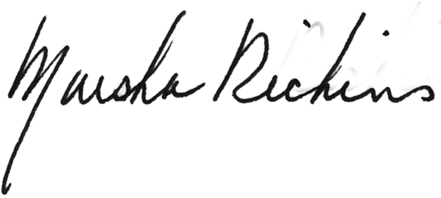 Marsha Richins